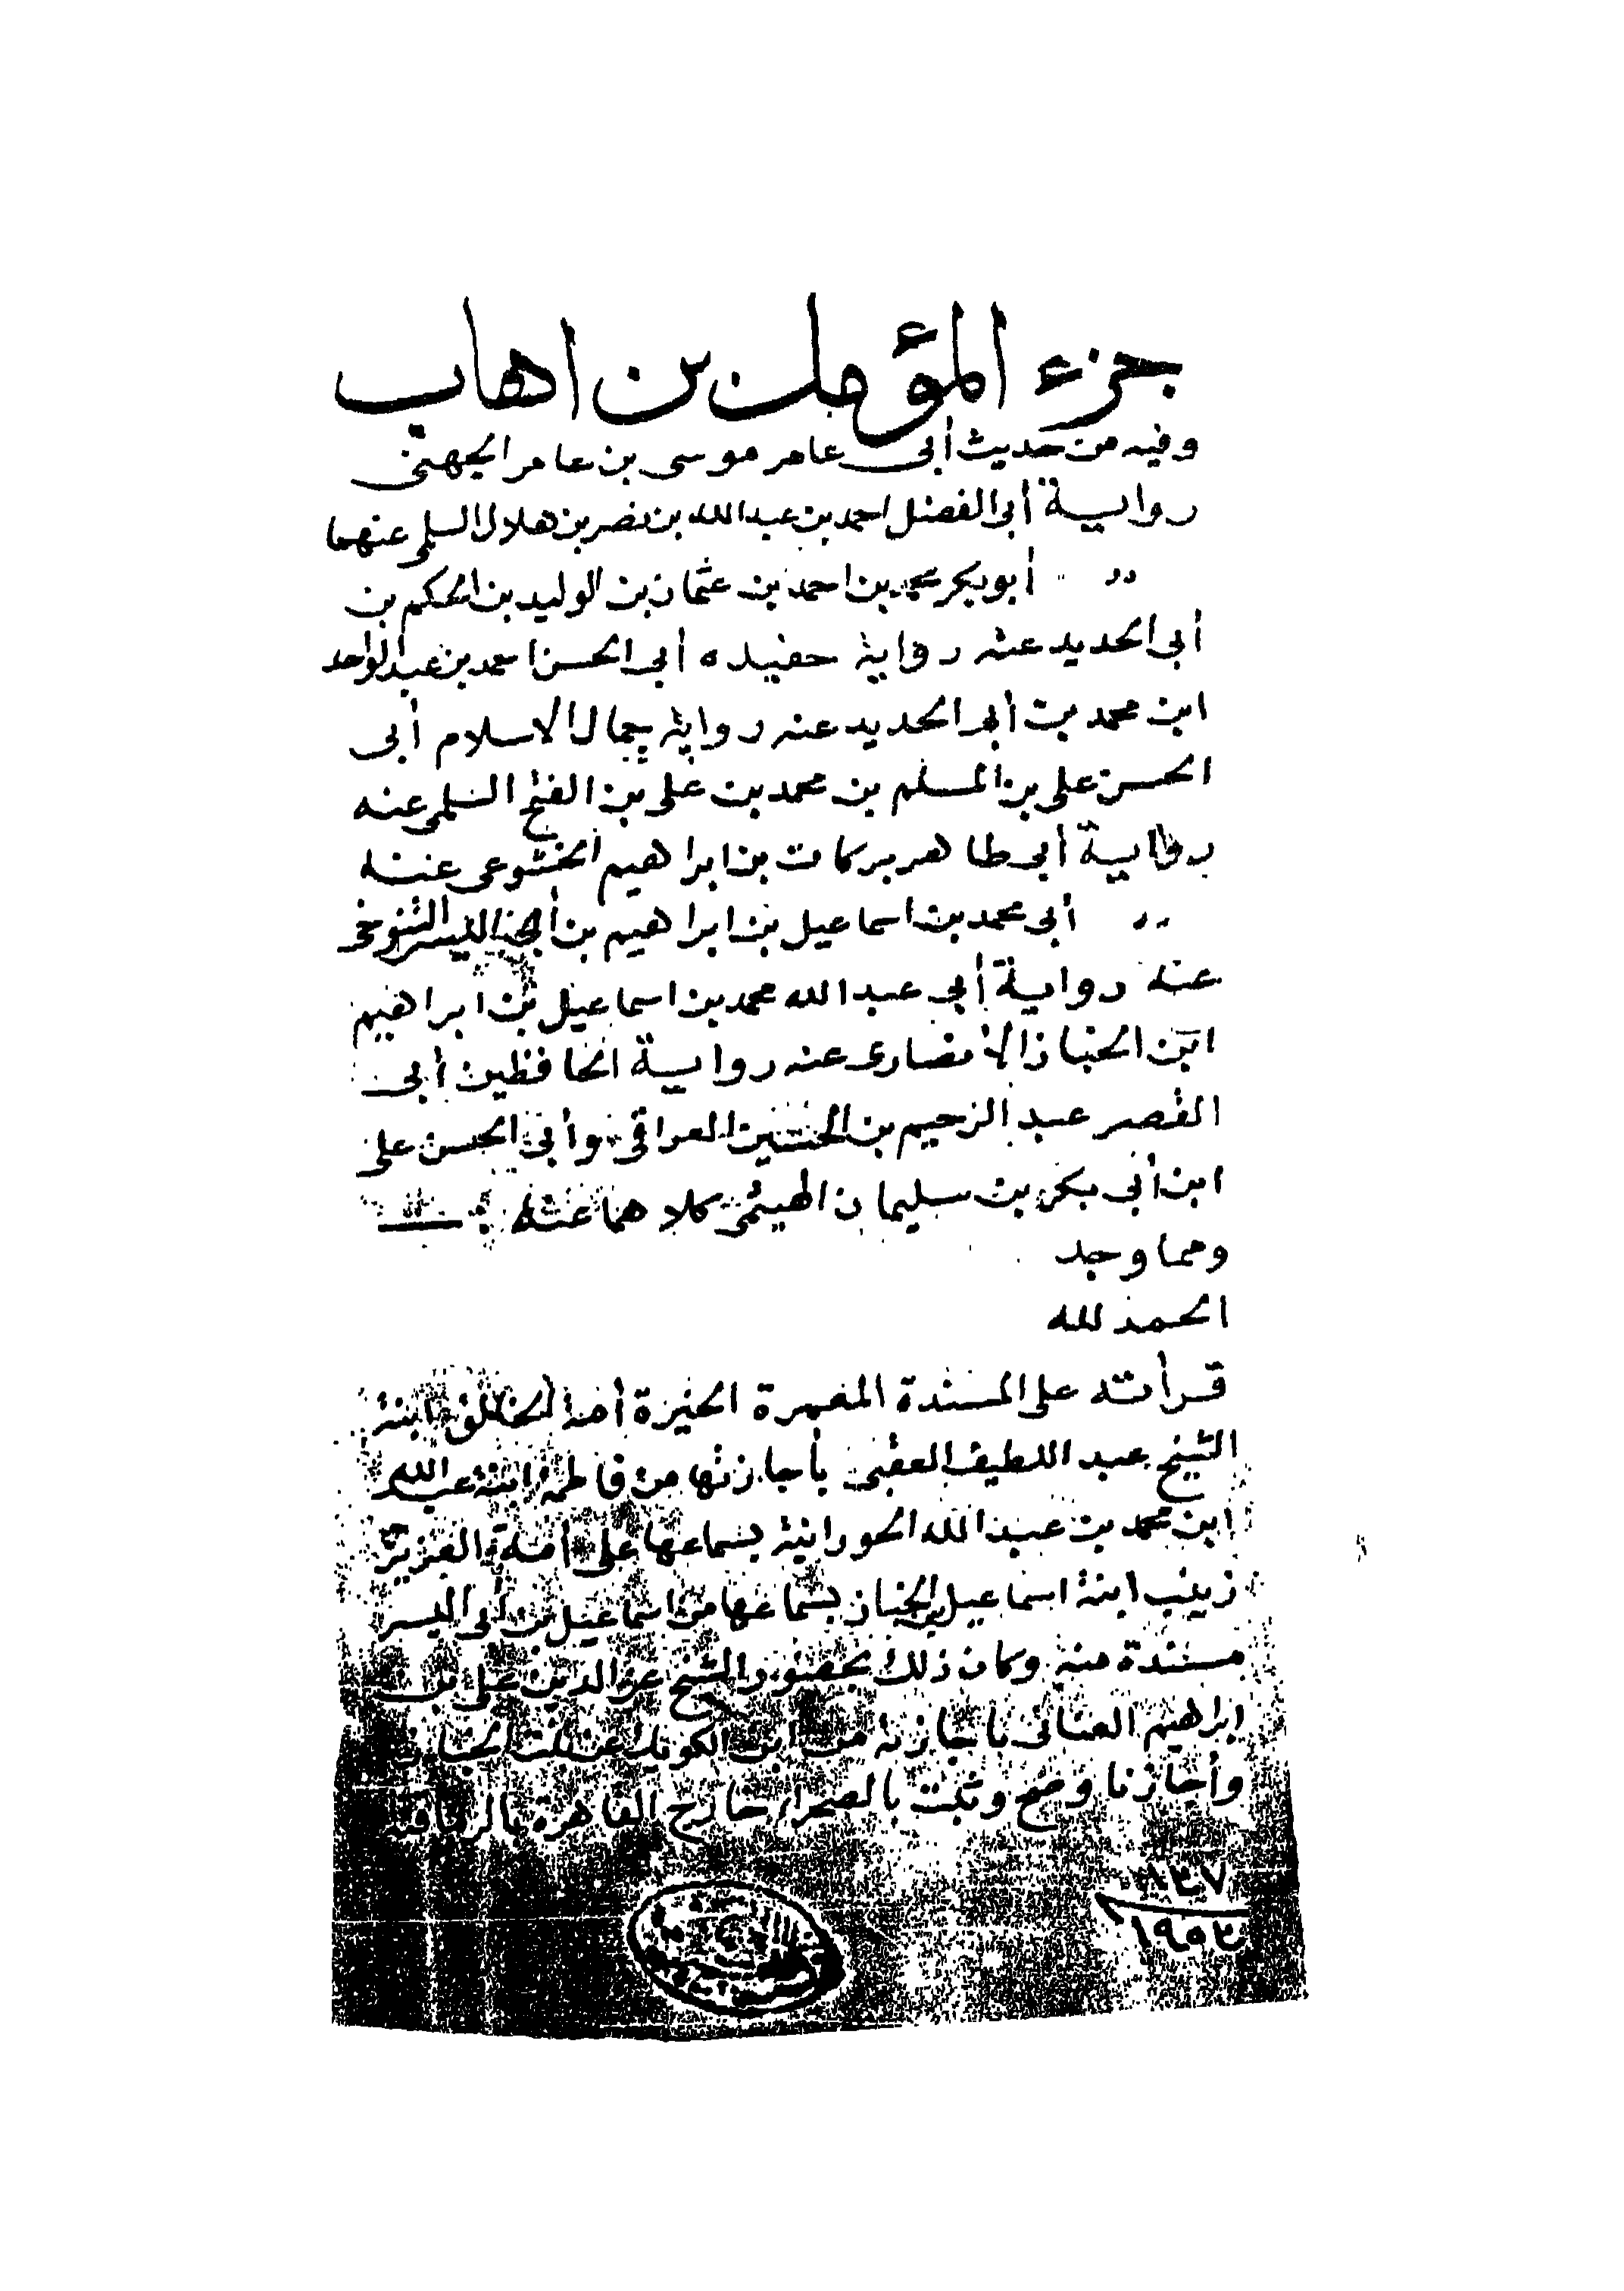 جزء المؤمل بن اهاب
وفيه من حديث أبى عامر موسى بن عامر الجهنى
رواية أبى الفضل احمد بن عبد الله بن نصر بن هلال السلمى عنهما
" أبو بكر محمد بن احمد بن عثمان بن الوليد بن الحكم بن
أبى الحديد عنه رواية حفيده أبى الحسن احمد بن عبد الواحد
ابن محمد بن أبى الحديد عنه رواية جمال الاسلام أبى
الحسن على بن المسلم بن محمد بن على بن الفتح السلمى عنه
رواية أبى طاهر بركات بن ابراهيم الخشوعى عنه
" أبى محمد بن اسماعيل بن ابراهيم بن أبى اليسر التنوخى
عنه رواية أبى عبد الله محمد بن اسماعيل بن ابراهيم
ابن الخباز الأنصارى عنه رواية الحافظين أبى
الفضر عبد الرحيم بن الحسين العراقى وأبى الحسن على
ابن أبى بكر بن سليمان الهيثمى كلاهما عنه
ومما وجد
الحمد لله
قرأته على المسندة المعمرة الخيرة أمة الخالق ابنة
الشيخ عبد اللطيف العقبى بأجازتها من فاطمة ابنة عبد الله
ابن محمد بن عبد الله الحورانية بسماعها على أمة العزيز
زينب ابنة اسماعيل بن الخباز بسماعها من اسماعيل بن أبى اليسر
مسندة منه وكان ذلك بحضور الشيخ عز الدين على بن
ابراهيم العنانى باجازته من ابن الكويك عن بنت الخباز
وأجازنا وصح وثبت بالصحراء خارج القاهرة
١٩٥٣